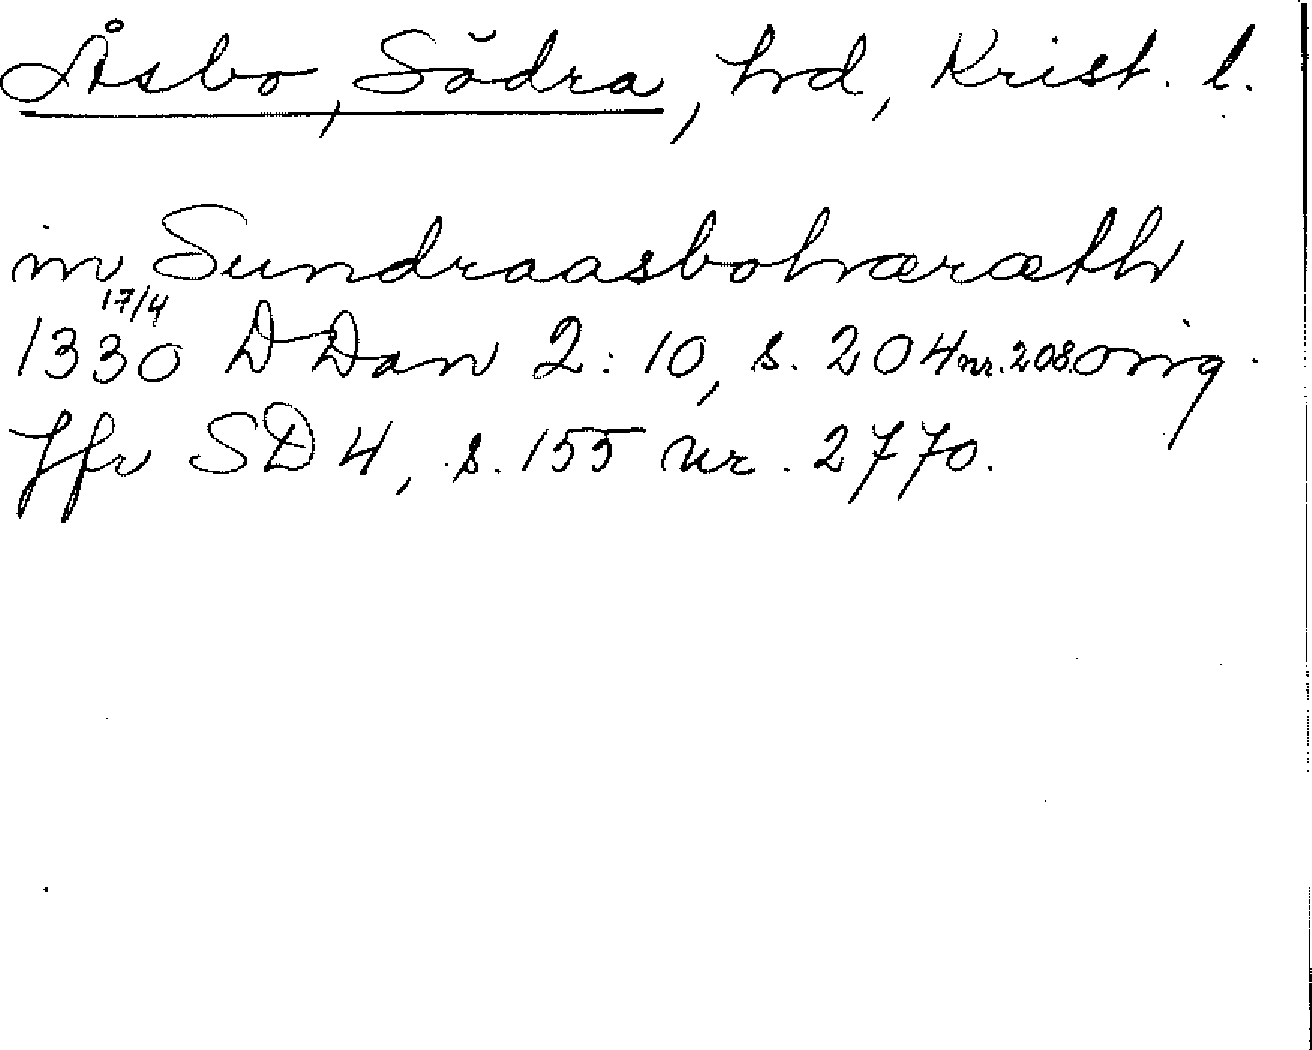 Åsbo, Södra, hd, Krist. l.
in Sundraasbohæræth
17/4
1330 D Dan 2:10, s. 204 nr. 208 orig.
Jfr SD 4, s. 155 nr. 2770.